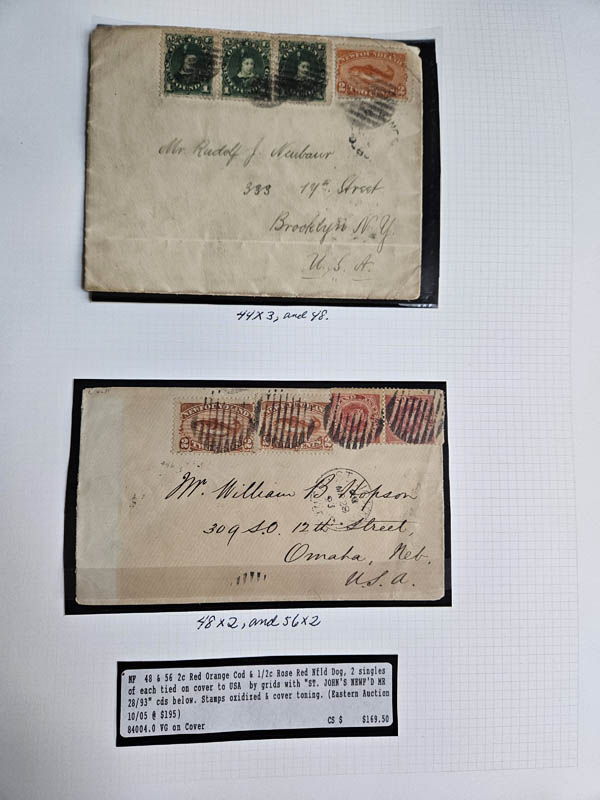 NEWFOUNDLAND
2 2
Mr. Rudolf J. Neubaur
388 19th Street
Brooklyn N.Y.
U.S.A.
44x3, and 48.
NEWFOUNDLAND
2 2
Mr. William B. Hopson
309 S.O. 12th Street,
Omaha, Neb.
U.S.A.
48x2, and 56x2
NF 48 & 56 2c Red Orange Cod & 1/2c Rose Red Nfld Dog, 2 singles
of each tied on cover to USA by grids with "ST. JOHN'S NEWF'D MR
28/93" cds below. Stamps oxidized & cover toning. (Eastern Auction
10/05 @ $195)
84004.0 VG on Cover CS $ $169.50